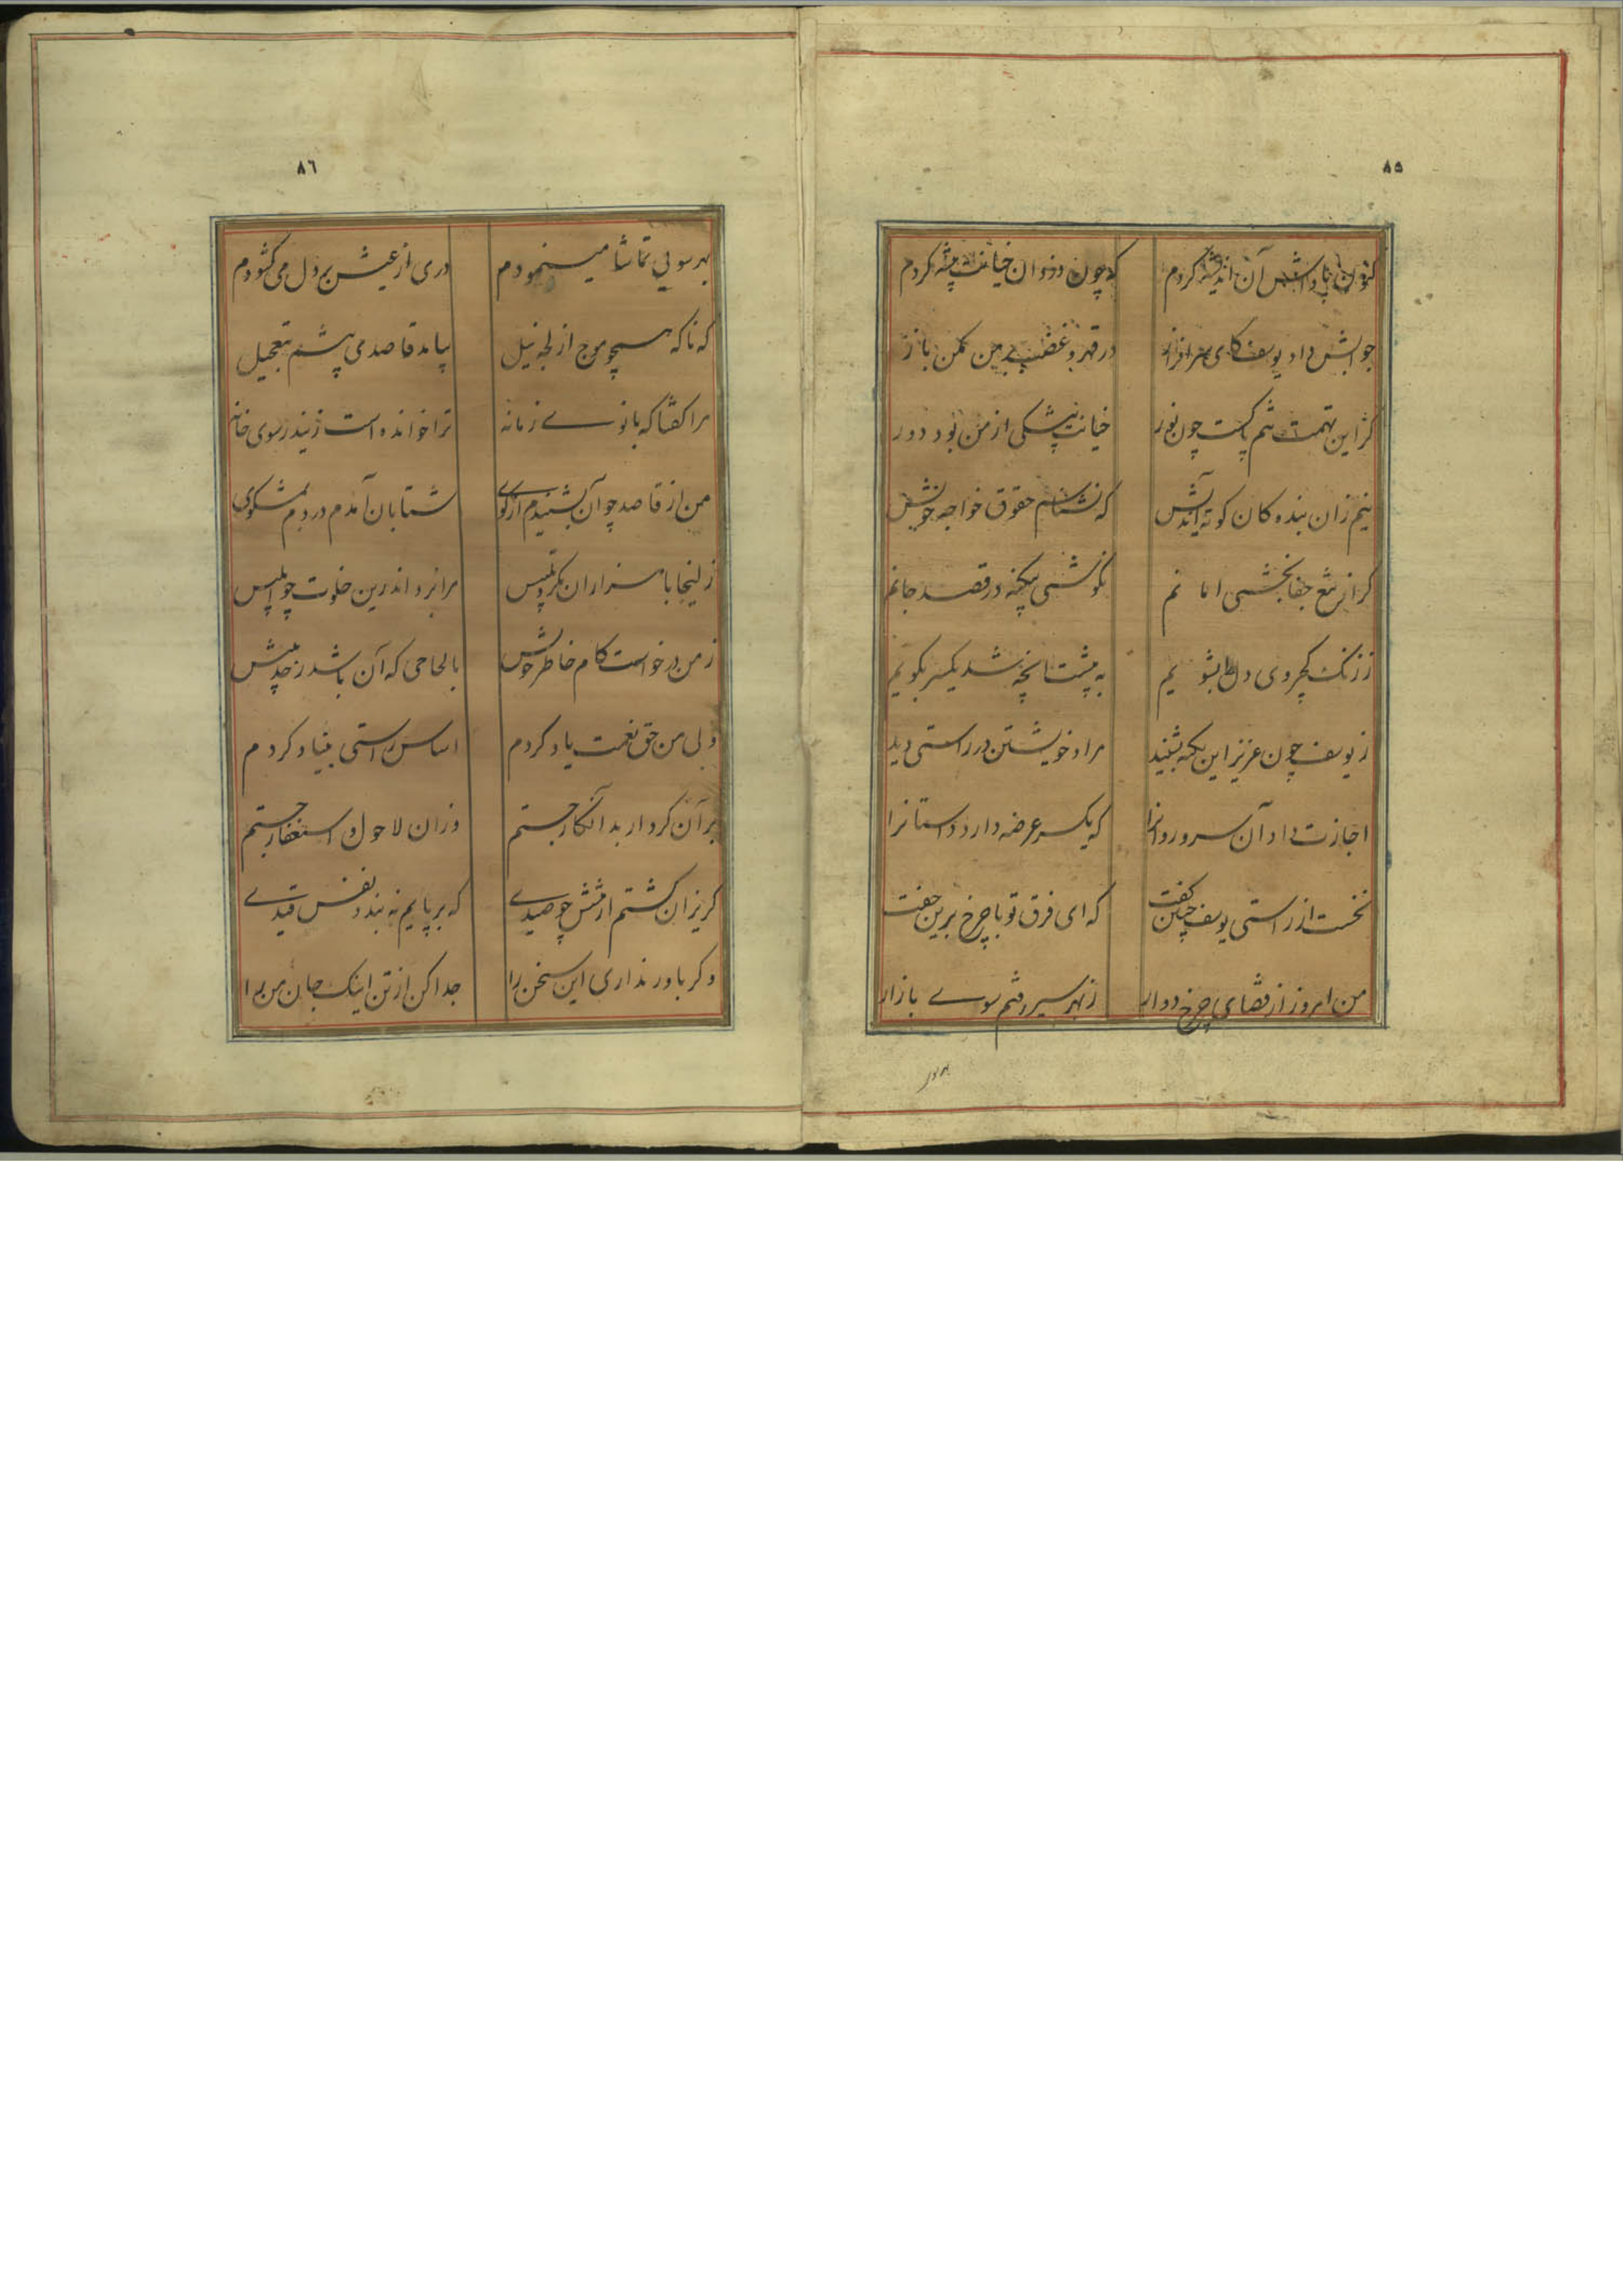 ٨٥
کنون پاداش آن اندیشه کردم که چون دزدان خیانت پیشه کردم
جوابش داد یوسف کای سرافراز در قهر و غضب بر من مکن باز
کزاین تهمت تنم پاکست چون نور خیانت پیشکی از من بود دور
نیم زان بنده کان کوته اندیش که نشناسم حقوق خواجه خویش
کر از تیغ جفا بخشی امانم نکوشی بیکنه در قصد جانم
ززنک کجروی دل را بشویم به پیشت انچه شد یکسر بکویم
ز یوسف چون عزیز این نکته بشنید مراد خویشتن در راستی دید
اجازت داد آن سرو روانرا که یکسر عرضه دارد داستانرا
نخست از راستی یوسف چنین کفت که ای فرق تو با چرخ برین جفت
من امروز از قضای چرخ دوار ز بهر سیر رفتم سوے بازار
بهر سو
٨٦
بهر سویی تماشا مینمودم دری از عیش بر دل می کشودم
که ناکه همچو موج از لجه نیل بیامد قاصدی پیشم بتعجیل
مرا کفتا که بانوے زمانه ترا خوانده است زیندر سوی خانه
من از قاصد چو آن بشنیدم از کوے شتابان آمدم در دم بمشکوی
زلیخا با هزاران مکر و تلبیس مرا برد اندرین خلوت چو ابلیس
ز من درخواست کام خاطر خویش بالحاحی که آن باشد ز حد بیش
ولی من حق نعمت یاد کردم اساس راستی بنیاد کردم
بر آن کردار بد انکار جستم وزان لاحول و استغفار جستم
کریزان کشتم از پیشش چو صیدے که بر پایم نه بندد نفس قیدے
و کر باور نداری این سخن را جدا کن از تن اینک جان من را